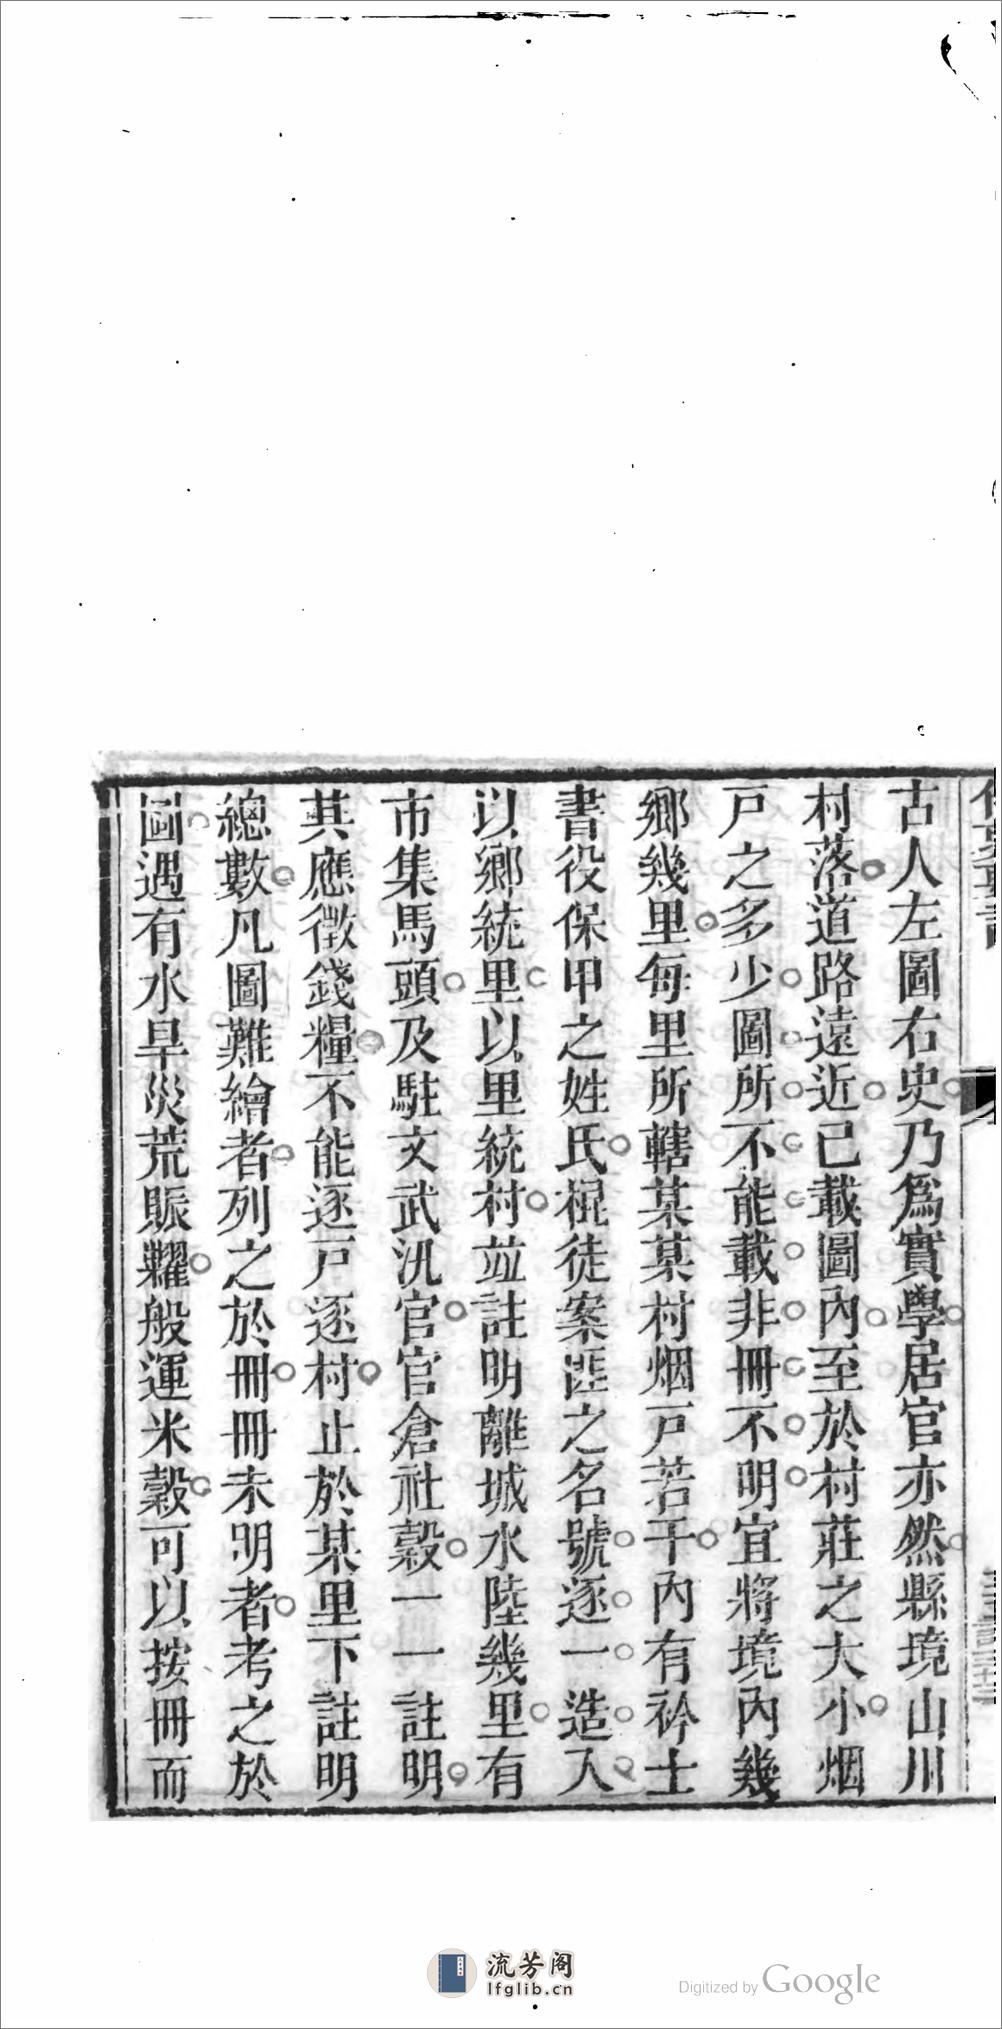 古人左圖右史乃爲實學居官亦然縣境山川
村落道路遠近已載圖內至於村莊之大小烟
戸之多少圖所不能載非冊不明宜將境內幾
鄉幾里每里所轄某某村烟戸若干內有衿士
書役保甲之姓氏棍徒案匪之名號逐一造入
以鄉統里以里統村並註明離城水陸幾里有
市集馬頭及駐文武汛官官倉社穀一一註明
其應徵錢糧不能逐戸逐村止於某里下註明
總數凡圖難繪者列之於冊冊未明者考之於
圖遇有水旱災荒賑糶般運米穀可以按冊而
流芳阁
lfglib.cn
Digitized by Google